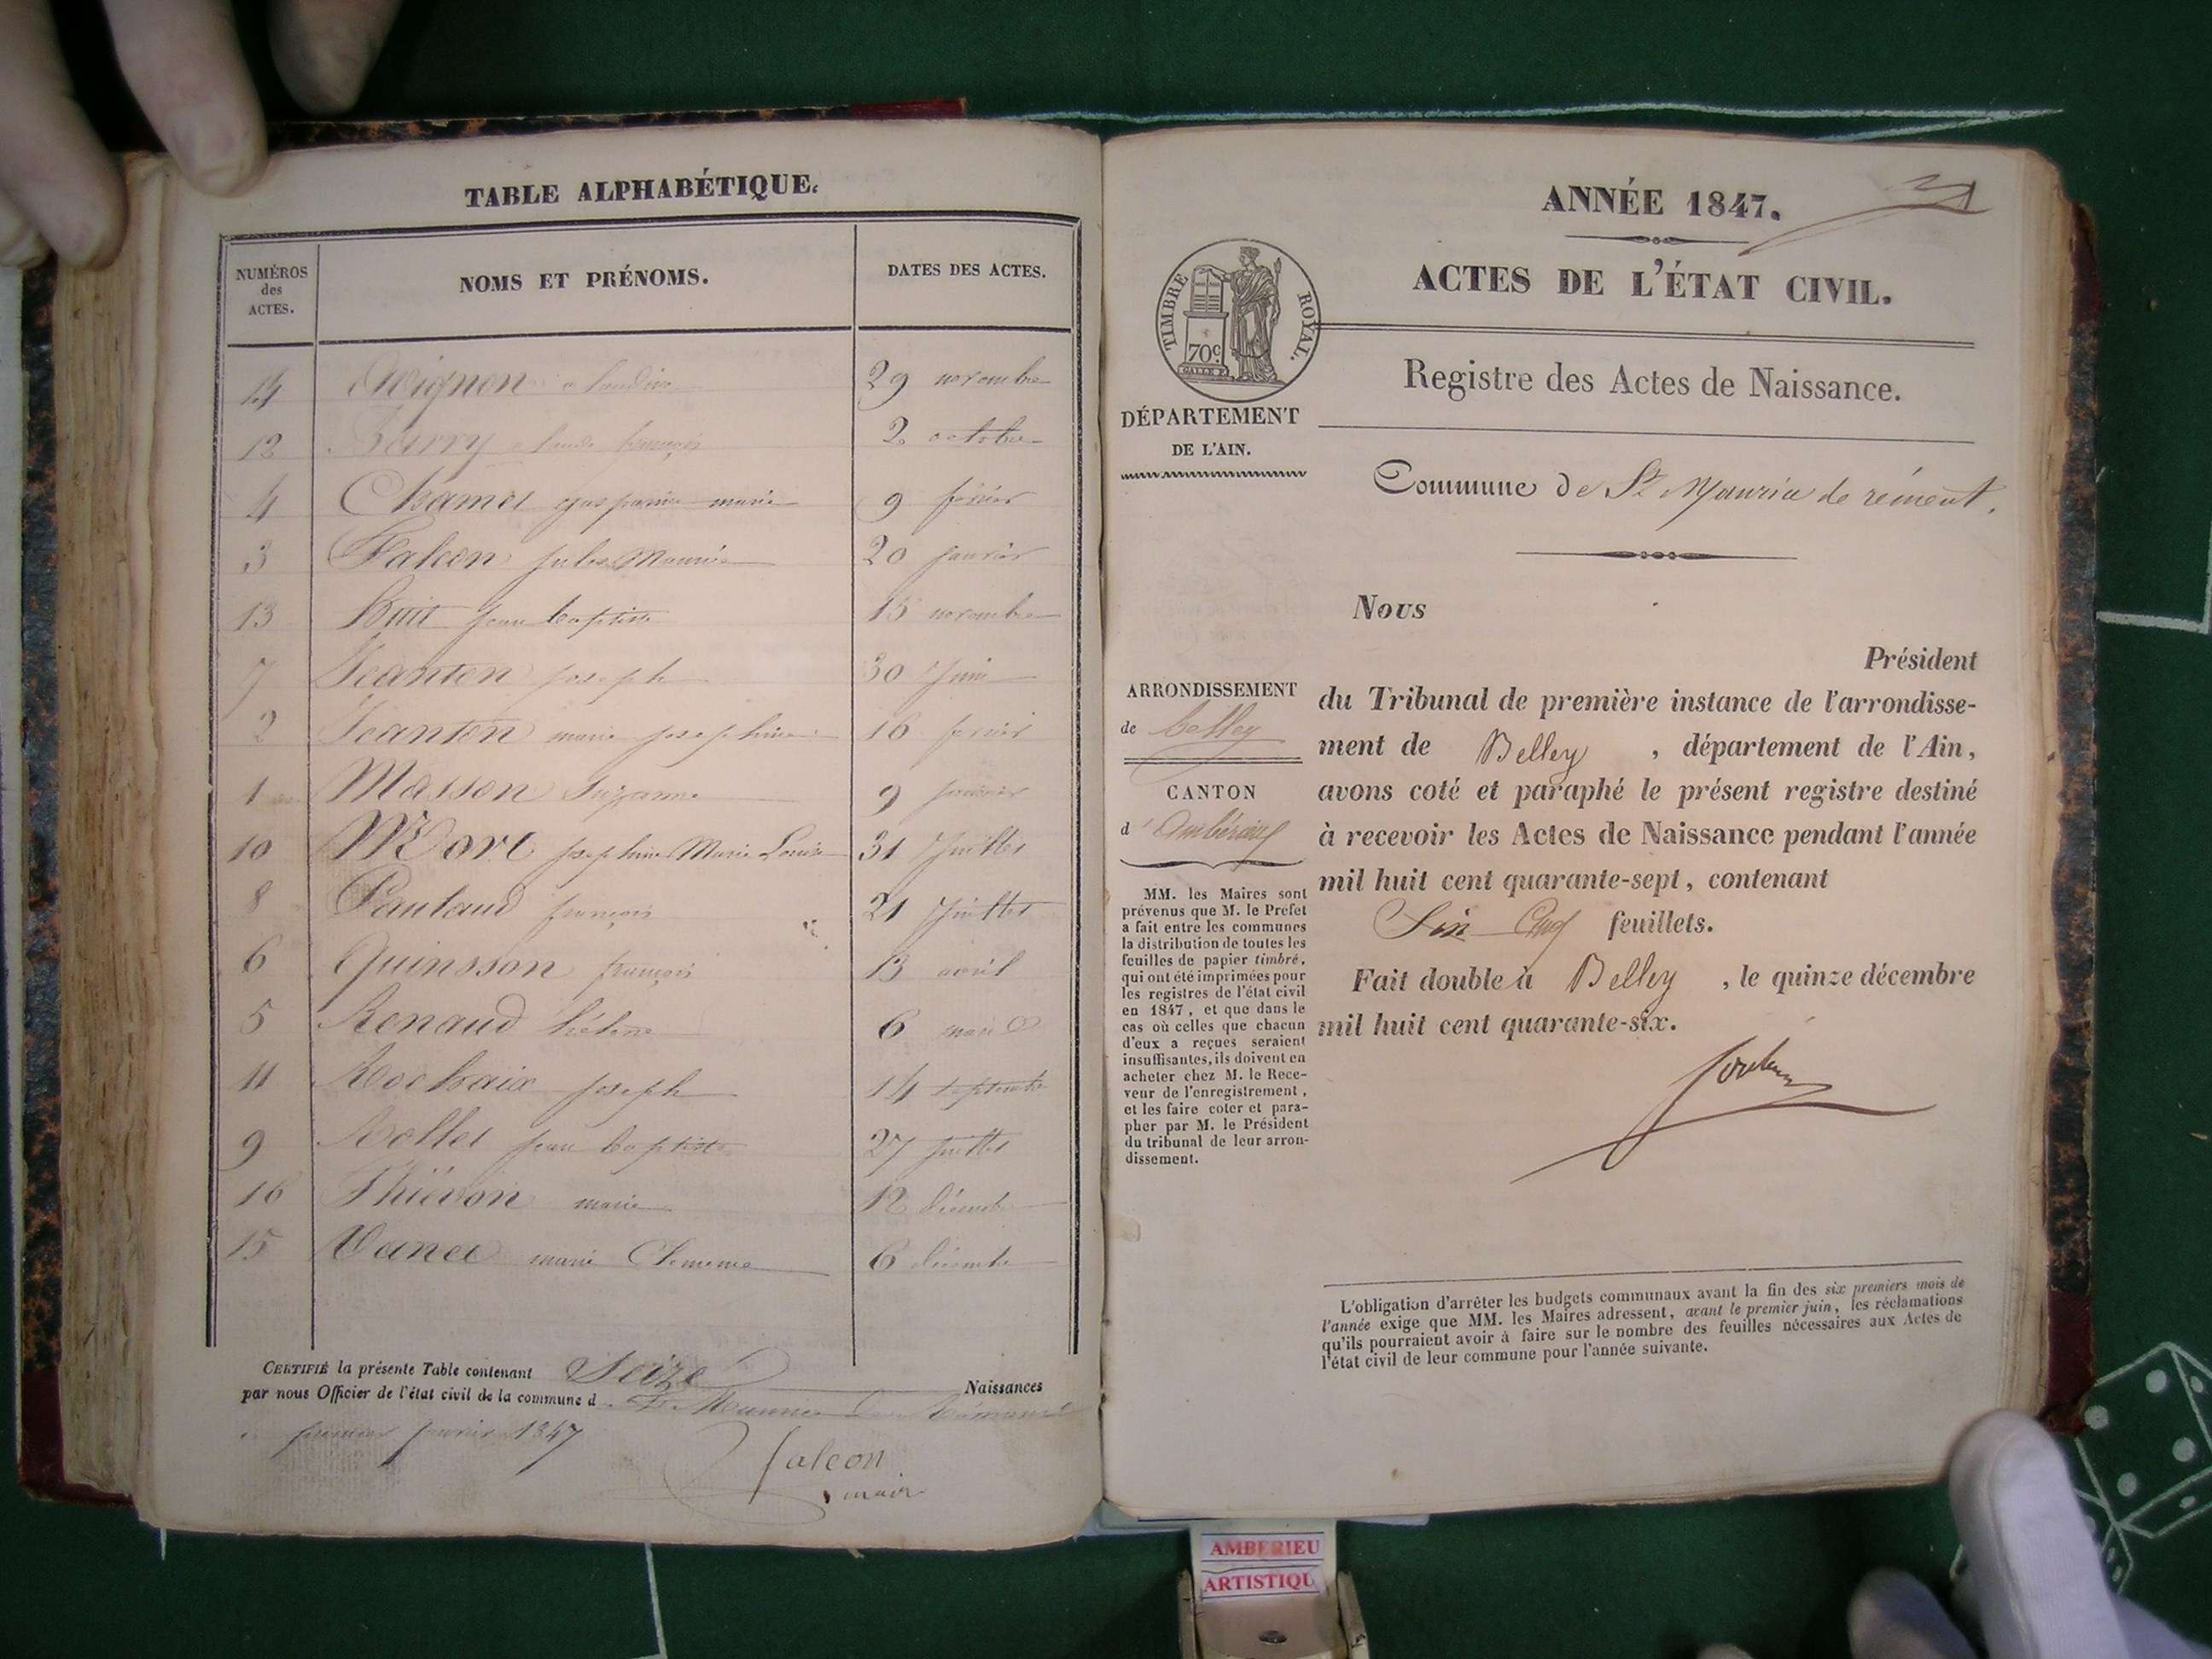 TABLE ALPHABÉTIQUE.
NUMÉROS des ACTES.
NOMS ET PRÉNOMS.
DATES DES ACTES.
14 Avignon claudine 29 novembre
12 Barry claude françois 2 octobre
4 Chamel gasparine marie 9 février
3 Falcon jules Maurice 20 janvier
13 Huit jean baptiste 15 novembre
7 Jeanton joseph 30 juin
2 Jeanton marie josephine 16 janvier
1 Masson Suzanne 9 janvier
10 Morel josephine Marie Louise 31 juillet
8 Pautaud françois 21 juillet
6 Quinsson françois 13 avril
5 Renaud hélène 6 mars
11 Rochaix joseph 14 septembre
9 Rollet jean baptiste 27 juillet
16 Thiévon marie 12 décembre
15 marie 6 décembre
CERTIFIÉ la présente Table contenant Seize Naissances
par nous Officier de l'état civil de la commune d St Maurice de Rémens
premier janvier 1847
falcon
maire
ANNÉE 1847.
ACTES DE L'ÉTAT CIVIL.
TIMBRE ROYAL.
70c
Registre des Actes de Naissance.
DÉPARTEMENT
DE L'AIN.
Commune de St Maurice de rément.
Nous
Président
ARRONDISSEMENT
de belley
CANTON
d'Ambérieux
du Tribunal de première instance de l'arrondisse-
ment de Belley , département de l'Ain,
avons coté et paraphé le présent registre destiné
à recevoir les Actes de Naissance pendant l'année
mil huit cent quarante-sept, contenant
feuillets.
Fait double à Belley , le quinze décembre
mil huit cent quarante-six.
MM. les Maires sont
prévenus que M. le Préfet
a fait entre les communes
la distribution de toutes les
feuilles de papier timbré,
qui ont été imprimées pour
les registres de l'état civil
en 1847, et que dans le
cas où celles que chacun
d'eux a reçues seraient
insuffisantes, ils doivent en
acheter chez M. le Rece-
veur de l'enregistrement,
et les faire coter et para-
pher par M. le Président
du tribunal de leur arron-
dissement.
L'obligation d'arrêter les budgets communaux avant la fin des six premiers mois de
l'année exige que MM. les Maires adressent, avant le premier juin, les réclamations
qu'ils pourraient avoir à faire sur le nombre des feuilles nécessaires aux Actes de
l'état civil de leur commune pour l'année suivante.
AMBERIEU
ARTISTIQU